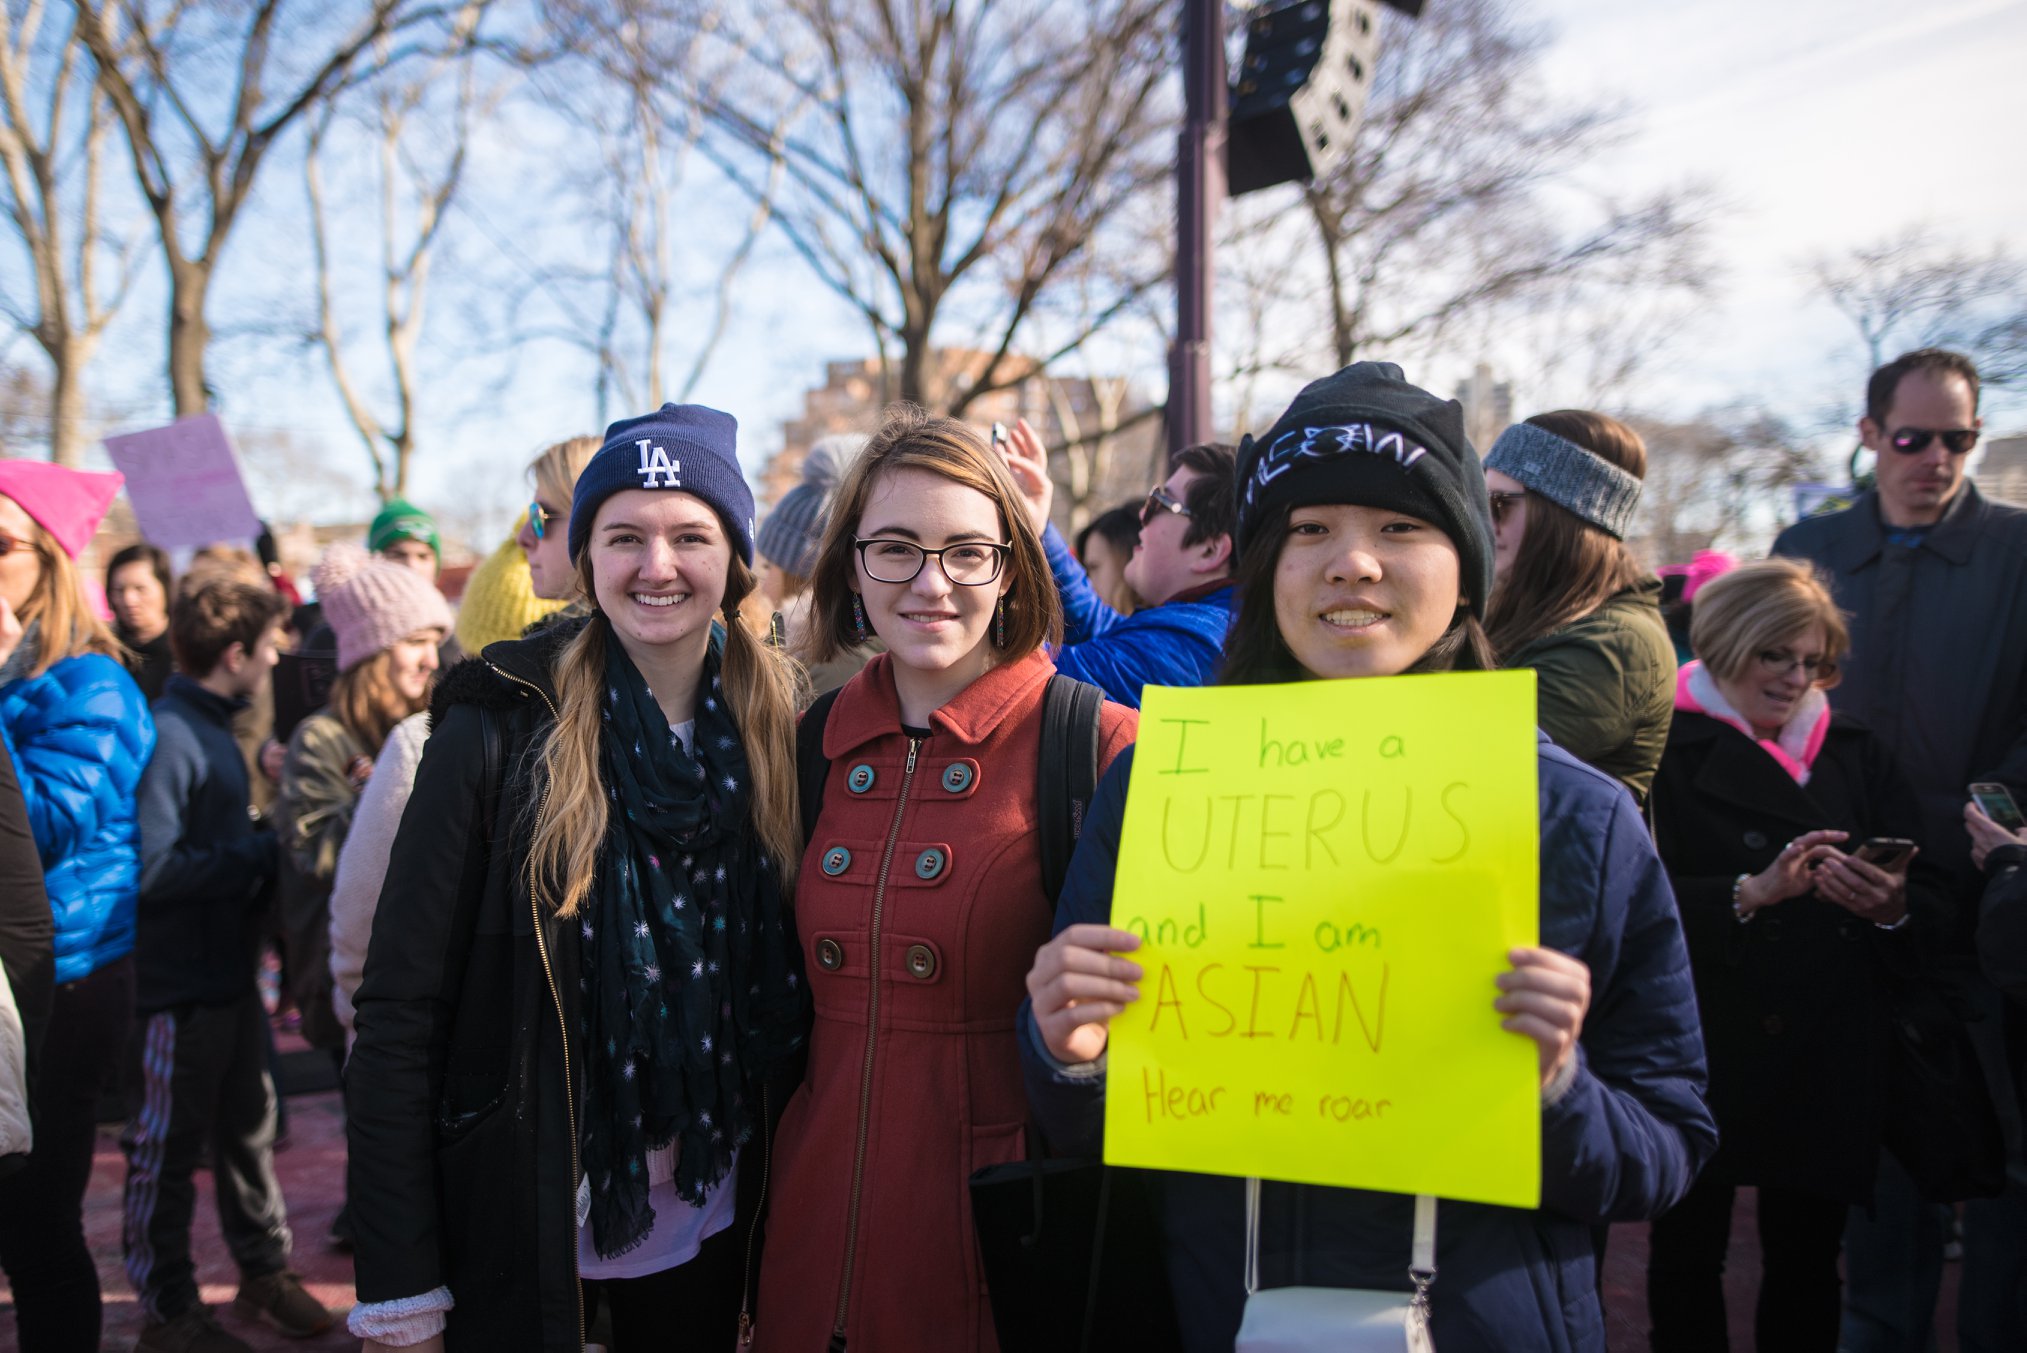 LA
I have a
UTERUS
and I am
ASIAN
Hear me roar